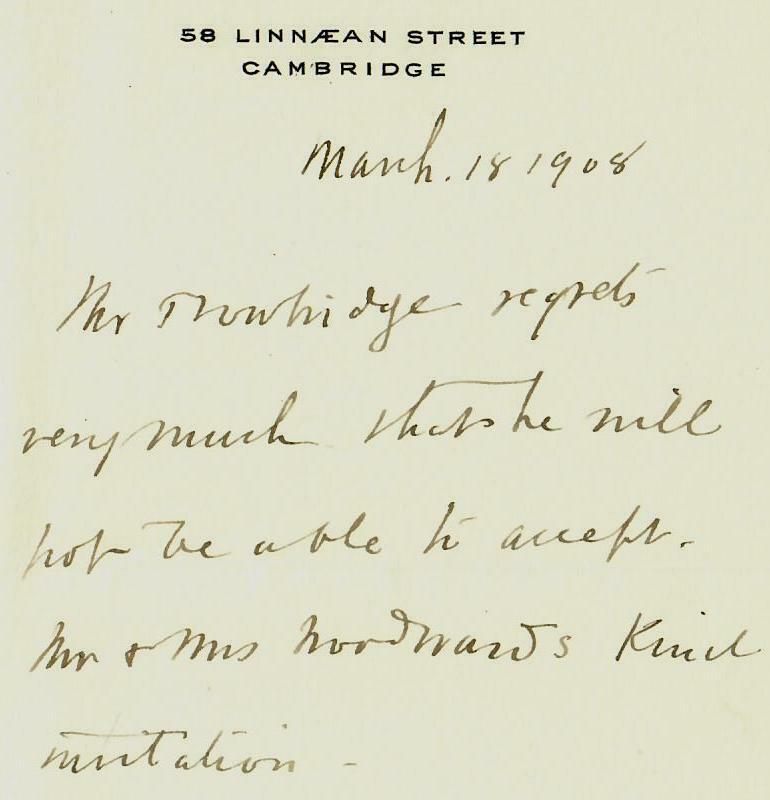 58 LINNÆAN STREET
CAMBRIDGE
March. 18 1908
Mr Trowbridge regrets
very much that he will
not be able to accept.
Mr & Mrs Woodward's Kind
invitation -